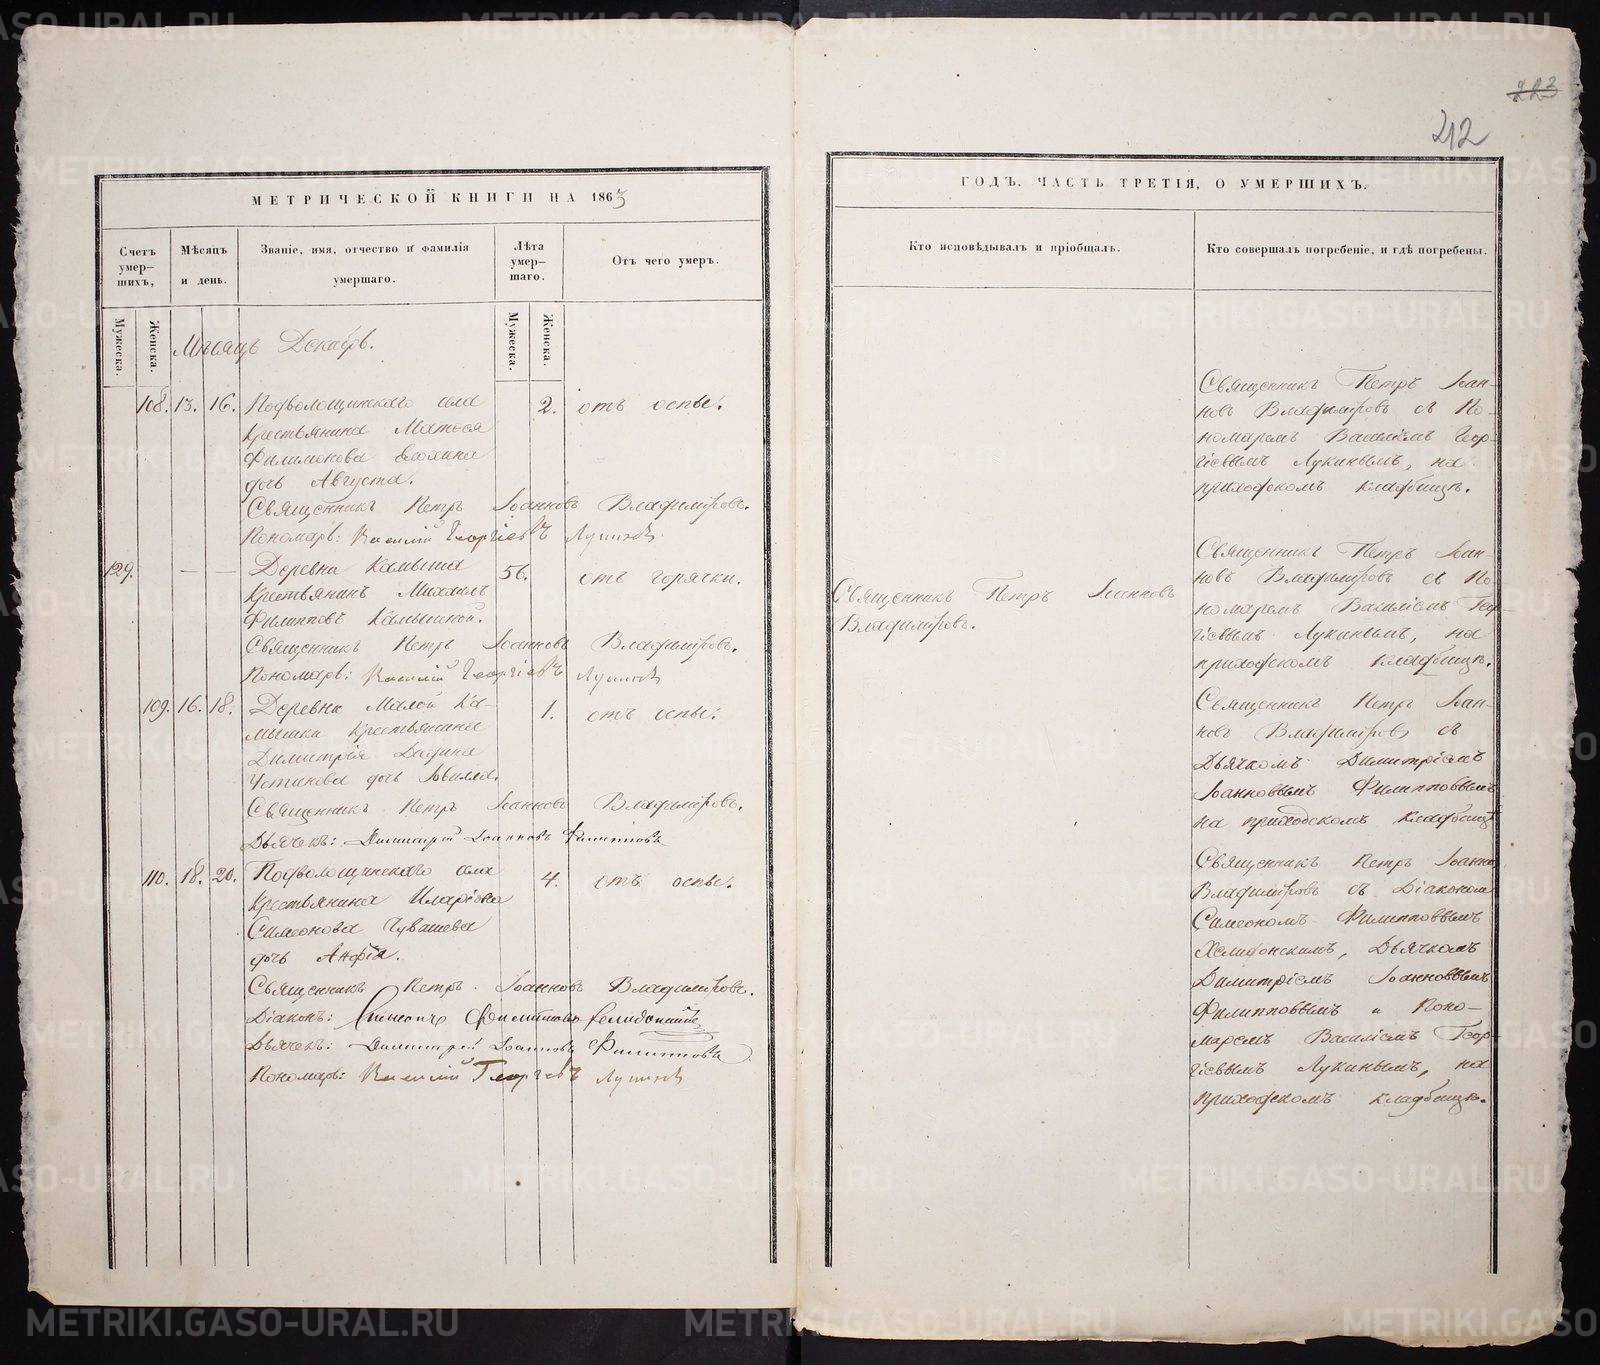 223
212
МЕТРИЧЕСКОЙ КНИГИ НА 1863
ГОДЪ, ЧАСТЬ ТРЕТІЯ, О УМЕРШИХЪ.
Счетъ умер–шихъ,
Мѣсяцъ и день.
Званіе, имя, отчество и фамилія умершаго.
Лѣта умер–шаго.
Отъ чего умеръ.
Кто исповѣдывалъ и пріобщалъ.
Кто совершалъ погребеніе, и гдѣ погребены.
Мужеска.
Женска.
Мужеска.
Женска.
Мѣсяцъ Декабр.
108. 13. 16. Подволошинскаго села 2. отъ оспы.
Крестьянина Матѳея
Филимонова
дочь Августа.
Священникъ Петръ Іоанновъ Владиміровъ.
Пономарь: Василій Георгіевъ Лукинъ
Священникъ Петръ Іоан–
новъ Владиміровъ съ По–
номаремъ Василіемъ Геор–
гіевымъ Лукинымъ, на
приходскомъ кладбищѣ.
129. — — Деревни Камыша 56. отъ горячки.
Крестьянинъ Михаилъ
Филипповъ Камышной.
Священникъ Петръ Іоанновъ Владиміровъ.
Пономарь: Василій Георгіевъ Лукинъ
Священникъ Петръ Іоанновъ
Владиміровъ.
Священникъ Петръ Іоан–
новъ Владиміровъ съ По–
номаремъ Василіемъ Геор–
гіевымъ Лукинымъ, на
приходскомъ кладбищѣ.
109. 16. 18. Деревни Малой Ка– 1. отъ оспы.
мышки Крестьянина
Димитрія
Устинова дочь
Священникъ Петръ Іоанновъ Владиміровъ.
Дьячекъ: Димитрій Іоанновъ Филипповъ
Священникъ Петръ Іоан–
новъ Владиміровъ съ
Дьячкомъ Димитріемъ
Іоанновымъ Филипповымъ
на приходскомъ кладбищѣ
110. 18. 20. Подволошинскаго села 4. отъ оспы.
Крестьянина Иларіона
Симеонова Чувашева
дочь Анфія.
Священникъ Петръ Іоанновъ Владиміровъ.
Діаконъ: Симеонъ Филипповъ Хелидонскій
Дьячекъ: Димитрій Іоанновъ Филипповъ
Пономарь: Василій Георгіевъ Лукинъ
Священникъ Петръ Іоанно
Владиміровъ съ Діакономъ
Симеономъ Филипповымъ
Хелидонскимъ, Дьячкомъ
Димитріемъ Іоанновымъ
Филипповымъ и Поно–
маремъ Василіемъ Геор–
гіевымъ Лукинымъ, на
приходскомъ кладбищѣ.